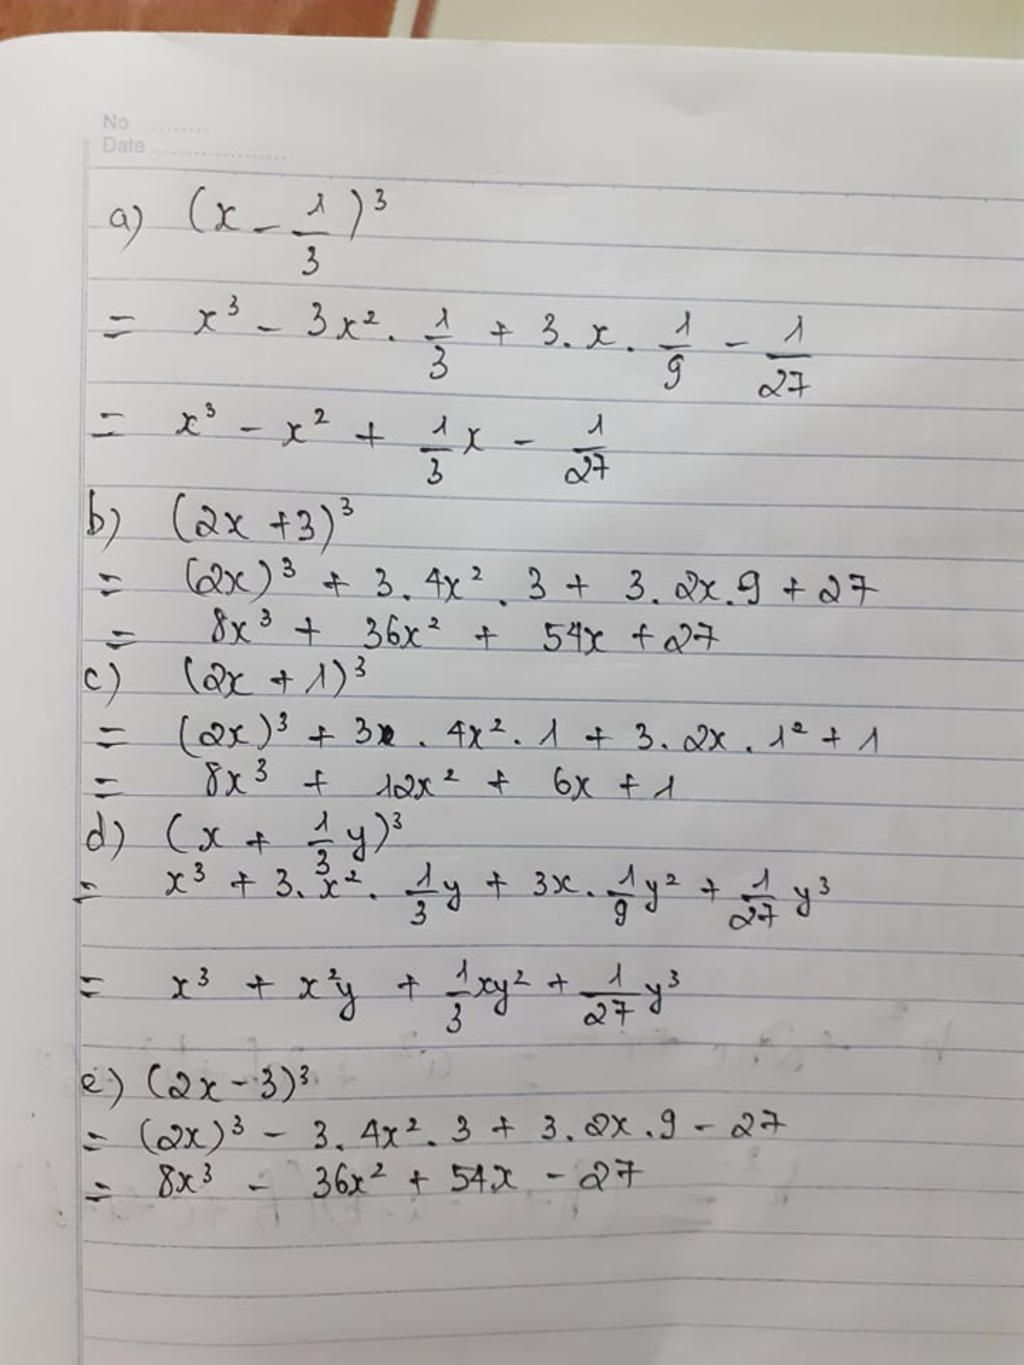 No. .........
Date ..................
a) (x - 1/3)³
= x³ - 3x² . 1/3 + 3 . x . 1/9 - 1/27
= x³ - x² + 1/3 x - 1/27
b) (2x + 3)³
= (2x)³ + 3 . 4x² . 3 + 3 . 2x . 9 + 27
= 8x³ + 36x² + 54x + 27
c) (2x + 1)³
= (2x)³ + 3 . 4x² . 1 + 3 . 2x . 1² + 1
= 8x³ + 12x² + 6x + 1
d) (x + 1/3 y)³
= x³ + 3 . x² . 1/3 y + 3x . 1/9 y² + 1/27 y³
= x³ + x²y + 1/3 xy² + 1/27 y³
e) (2x - 3)³
= (2x)³ - 3 . 4x² . 3 + 3 . 2x . 9 - 27
= 8x³ - 36x² + 54x - 27